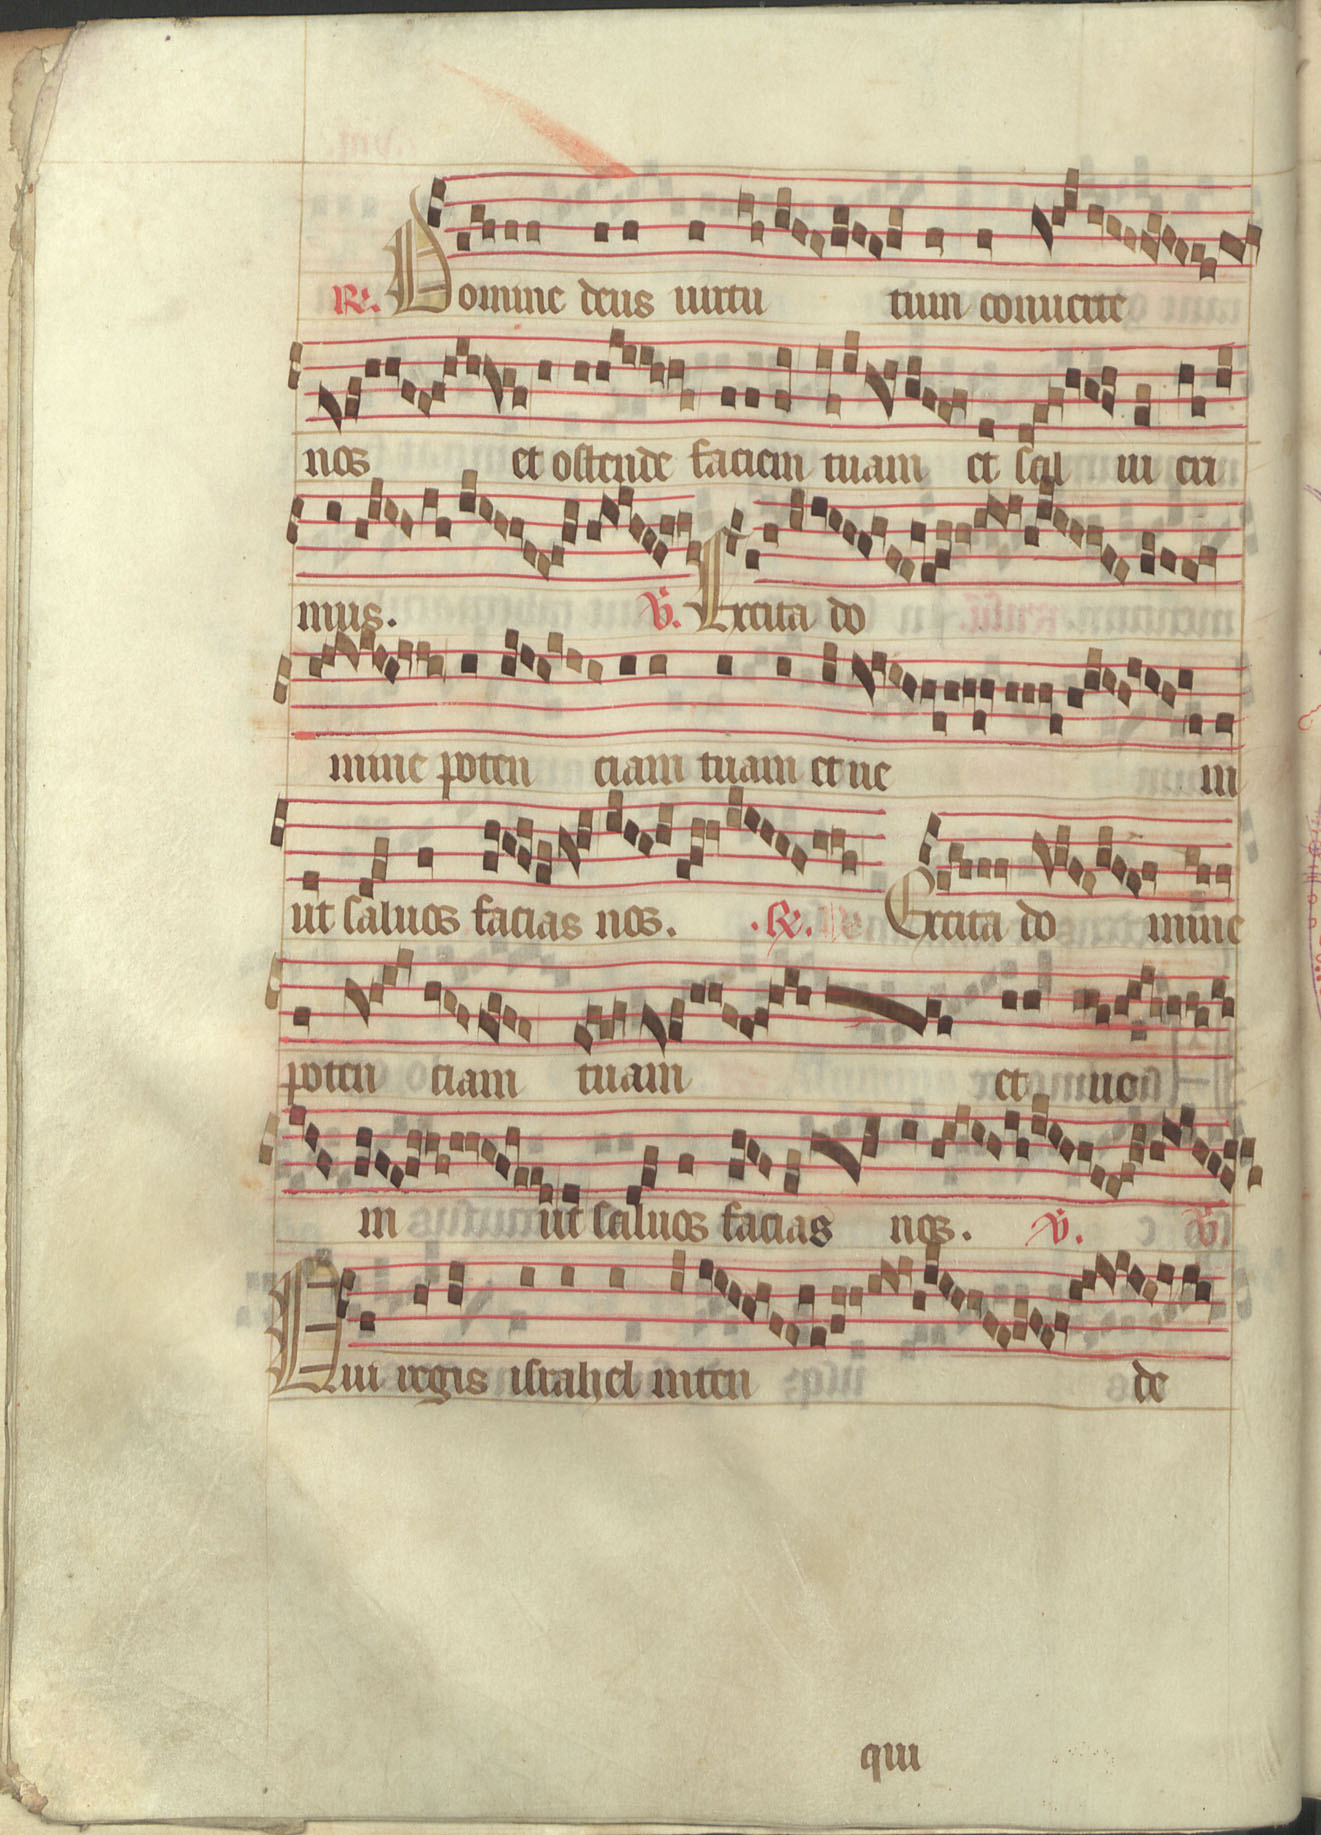 R. Domine deus uirtu tum conuerte
nos et ostende faciem tuam et sal ui eri
mus. V. Excita do
mine poten ciam tuam et ue ni
ut saluos facias nos. R. Excita do mine
poten ciam tuam et ue
ni ut saluos facias nos. V. V
Qui regis israhel inten de
qui